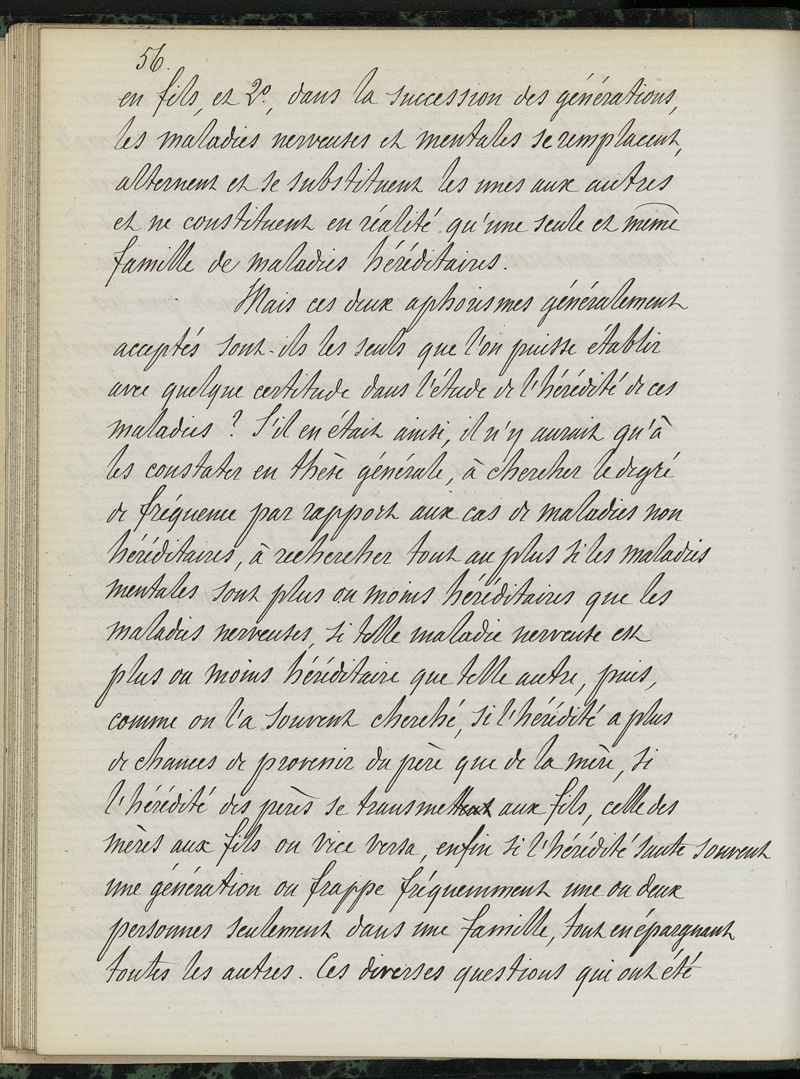 56.
en fils, et 2º, dans la succession des générations,
les maladies nerveuses et mentales se remplacent,
alternent et se substituent les unes aux autres
et ne constituent en réalité qu'une seule et même
famille de maladies héréditaires.
Mais ces deux aphorismes généralement
acceptés sont-ils les seuls que l'on puisse établir
avec quelque certitude dans l'étude de l'hérédité de ces
maladies ? S'il en était ainsi, il n'y aurait qu'à
les constater en thèse générale, à chercher le degré
de fréquence par rapport aux cas de maladies non
héréditaires, à rechercher tout au plus si les maladies
mentales sont plus ou moins héréditaires que les
maladies nerveuses, si telle maladie nerveuse est
plus ou moins héréditaire que telle autre, puis,
comme on l'a souvent cherché, si l'hérédité a plus
de chances de provenir du père que de la mère, si
l'hérédité des pères se transmet aux fils, celle des
mères aux fils ou vice versa, enfin si l'hérédité saute souvent
une génération ou frappe fréquemment une ou deux
personnes seulement dans une famille, tout en épargnant
toutes les autres. Ces diverses questions qui ont été